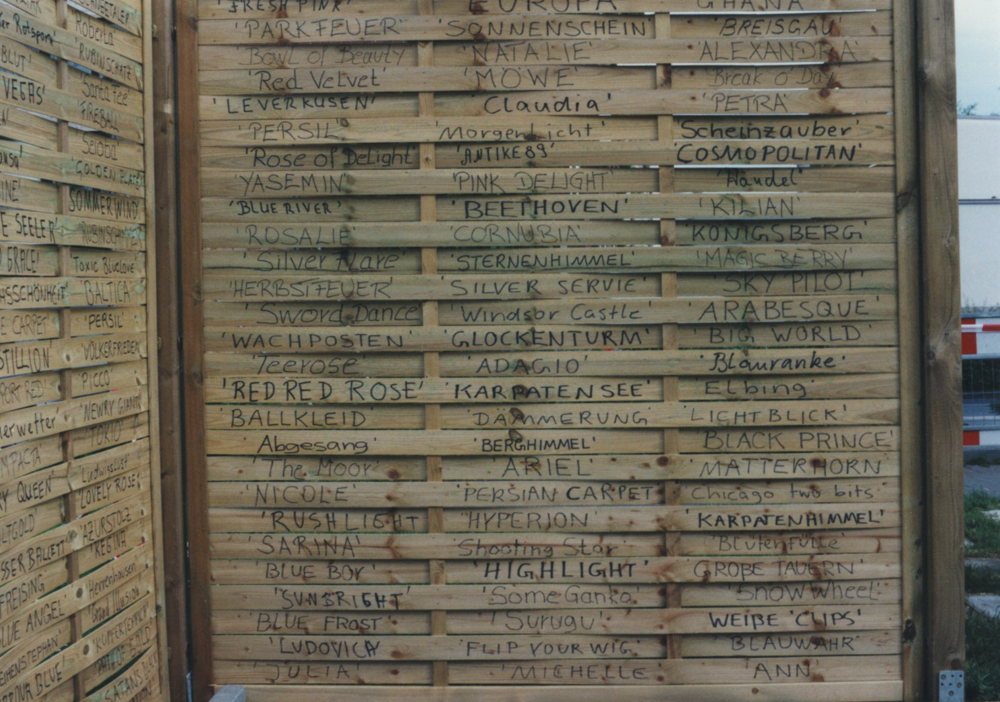 'FRESH PINK' EUROPA GHANA
'PARKFEUER' 'SONNENSCHEIN' 'BREISGAU'
'Bowl of Beauty' 'NATALIE' 'ALEXANDRA'
'Red Velvet' 'MÖWE' 'Break o' Day'
'LEVERKUSEN' 'Claudia' 'PETRA'
'PERSIL' 'Morgenlicht' 'Scheinzauber'
'Rose of Delight' 'ANTIKE89' 'COSMOPOLITAN'
'YASEMIN' 'PINK DELIGHT' 'Händel'
'BLUE RIVER' 'BEETHOVEN' 'KILIAN'
'ROSALIE' 'CORNUBIA' 'KÖNIGSBERG'
'Silver Mare' 'STERNENHIMMEL' 'MAGIC BERRY'
'HERBSTFEUER' 'SILVER SERVIE' 'SKY PILOT'
'Sword Dance' 'Windsor Castle' 'ARABESQUE'
'WACHPOSTEN' 'GLOCKENTURM' 'BIG WORLD'
'Teerose' 'ADAGIO' 'Blauranke'
'RED RED ROSE' 'KARPATENSEE' 'Elbing'
'BALLKLEID' 'DÄMMERUNG' 'LICHTBLICK'
'Abgesang' 'BERGHIMMEL' 'BLACK PRINCE'
'The Moor' 'ARIEL' 'MATTERHORN'
'NICOLE' 'PERSIAN CARPET' 'Chicago two bits'
'RUSHLIGHT' 'HYPERION' 'KARPATENHIMMEL'
'SARINA' 'Shooting Star' 'Blütenfülle'
'BLUE BOY' 'HIGHLIGHT' 'GROßE TAUERN'
'SUNBRIGHT' 'Some Ganko' 'Snow Wheel'
'BLUE FROST' 'Surugu' WEIßE 'CLIPS'
'LUDOVICA' 'FLIP YOUR WIG' 'BLAUWAHR'
'JULIA' 'MICHELLE' 'ANN'
'Roberta'
'RUBINSCHATZ'
VEGAS' 'Santa Fee'
'FIREBALL'
'GOLDEN PLATE'
'SOMMERWIND'
SEELER'
'Toxic Bluelove'
'BALTICA'
CARPET' 'PERSIL'
'VÖLKERFRIEDEN'
'PICCO'
'TOKIO'
QUEEN' 'LOVELY ROSE'
'AZURSTOLZ'
BALLETT' 'REGINA'
FREISING 'Herrenhausen'
BLUE ANGEL 'Grand Illusion'
BLUE'